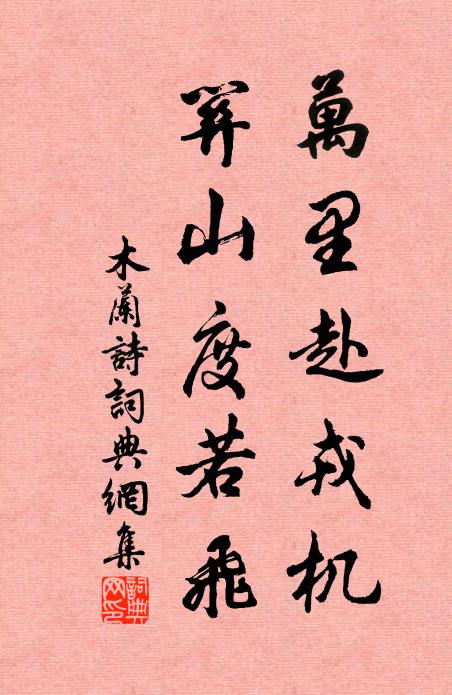 萬里赴戎机
關山度若飛
木蘭詩詞典網集
詞典
网印